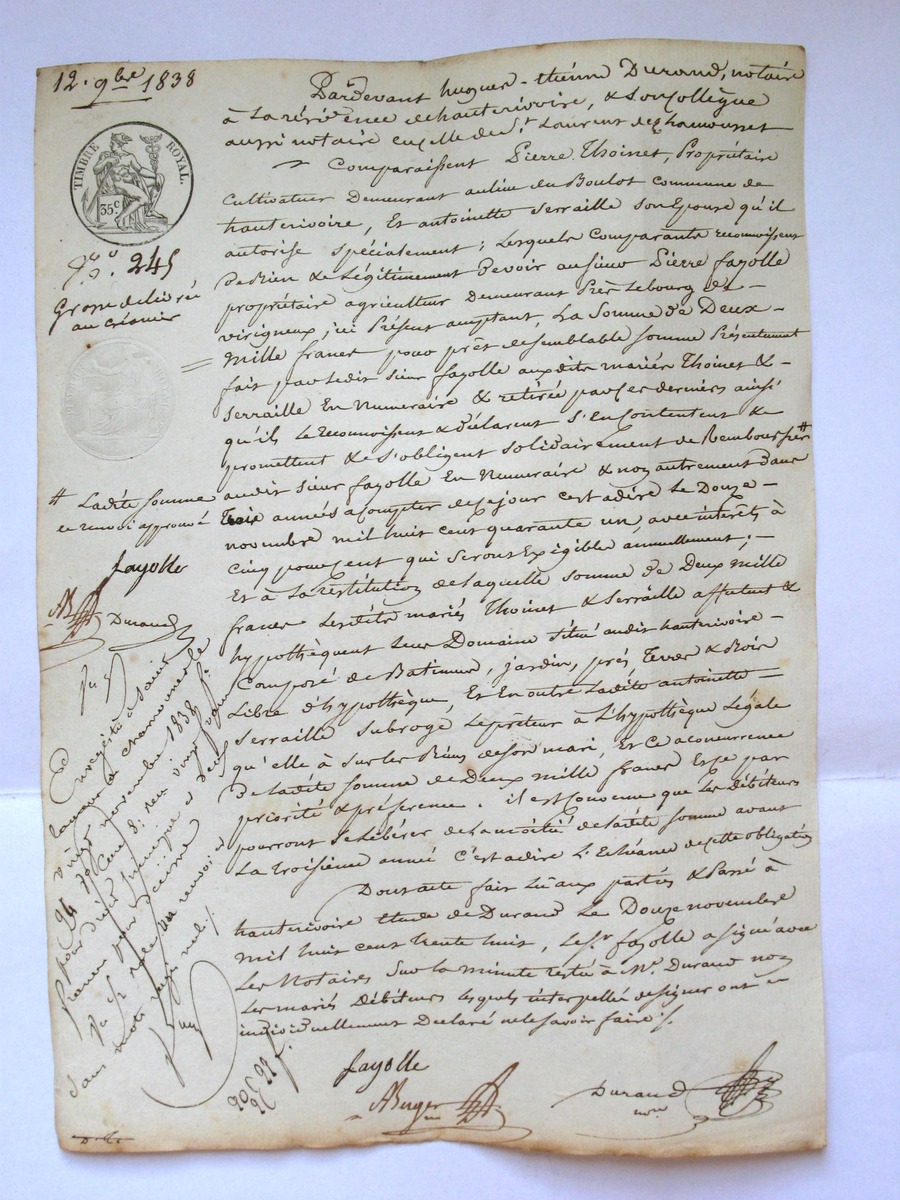 12. 9bre 1838
TIMBRE ROYAL.
35 c.
N.º 245
Grosse delivrée
au créancier
Pardevant hugues-étienne Durand, notaire
à La résidence de hauterivoire, & Son Collègue
aussi notaire en celle de St Laurent de Chamousset
Comparaissent Pierre Thoinet, Propriétaire
Cultivateur Demeurant au lieu du Boulot commune de
hauterivoire, Et antoinette Serraille son Epouse qu'il
autorise spécialement; Lesquels Comparants reconnoissent
De Bien & Légitimement Devoir au Sieur Pierre fayolle
propriétaire agriculteur Demeurant Près Le bourg de
virigneux, ici Présent acceptant, La Somme de Deux-
Mille francs pour prêt de semblable somme Présentement
fait par ledit sieur fayolle auxdits mariés Thoinet &
Serraille En Numeraire & retirée par Ces derniers ainsi
qu'ils Le Reconnoissent & Déclarent S'En Contentent &
promettent & S'obligent Solidairement de Rembourser #
audit sieur fayolle En Numeraire & non autrement Dans
trois années a Compter de Ce jour c'est adire Le Douze-
novembre mil huit Cent quarante un, avec interêts à
Cinq pour Cent qui Seront Exigible annuellement; -
Et a La restitution de laquelle somme de Deux Mille
francs Lesdits mariés Thoinet & Serraille affectent &
hypothèquent leur Domaine situé audit hauterivoire-
Composé de Batiment, jardin, prés, Terres & Bois
Libre d'hypothèque, Et En outre Ladite antoinette-
Serraille Subroge Le prêteur à L'hypothèque Légale
qu'elle à Sur les Biens de Son mari, Et Ce a Concurrence
De Ladite somme de Deux mille francs Et ce par
priorité & préférence. il est Convenu que Les Débiteurs
pourront Se Libérer de La moitié de Ladite Somme avant
La troisième année C'est adire L'Echéance de Cette obligation
Dont acte fait Lu aux parties & Passé à
hauterivoire étude de Durand Le Douze novembre
mil huit Cent trente huit, Le Sr fayolle a signé avec
Les Notaires Sur la minute restée à Me. Durand non
Les mariés Débiteurs Lesquels interpellé de signer ont
individuellement Déclaré ne le savoir faire ./.
# Ladite somme
ce renvoi approuvé
fayolle
Durand
Enregistré à Saint
Laurent de Chamousset le
vingt novembre 1838 f.º
francs pour décime
fayolle
ABuger
Durand
nre